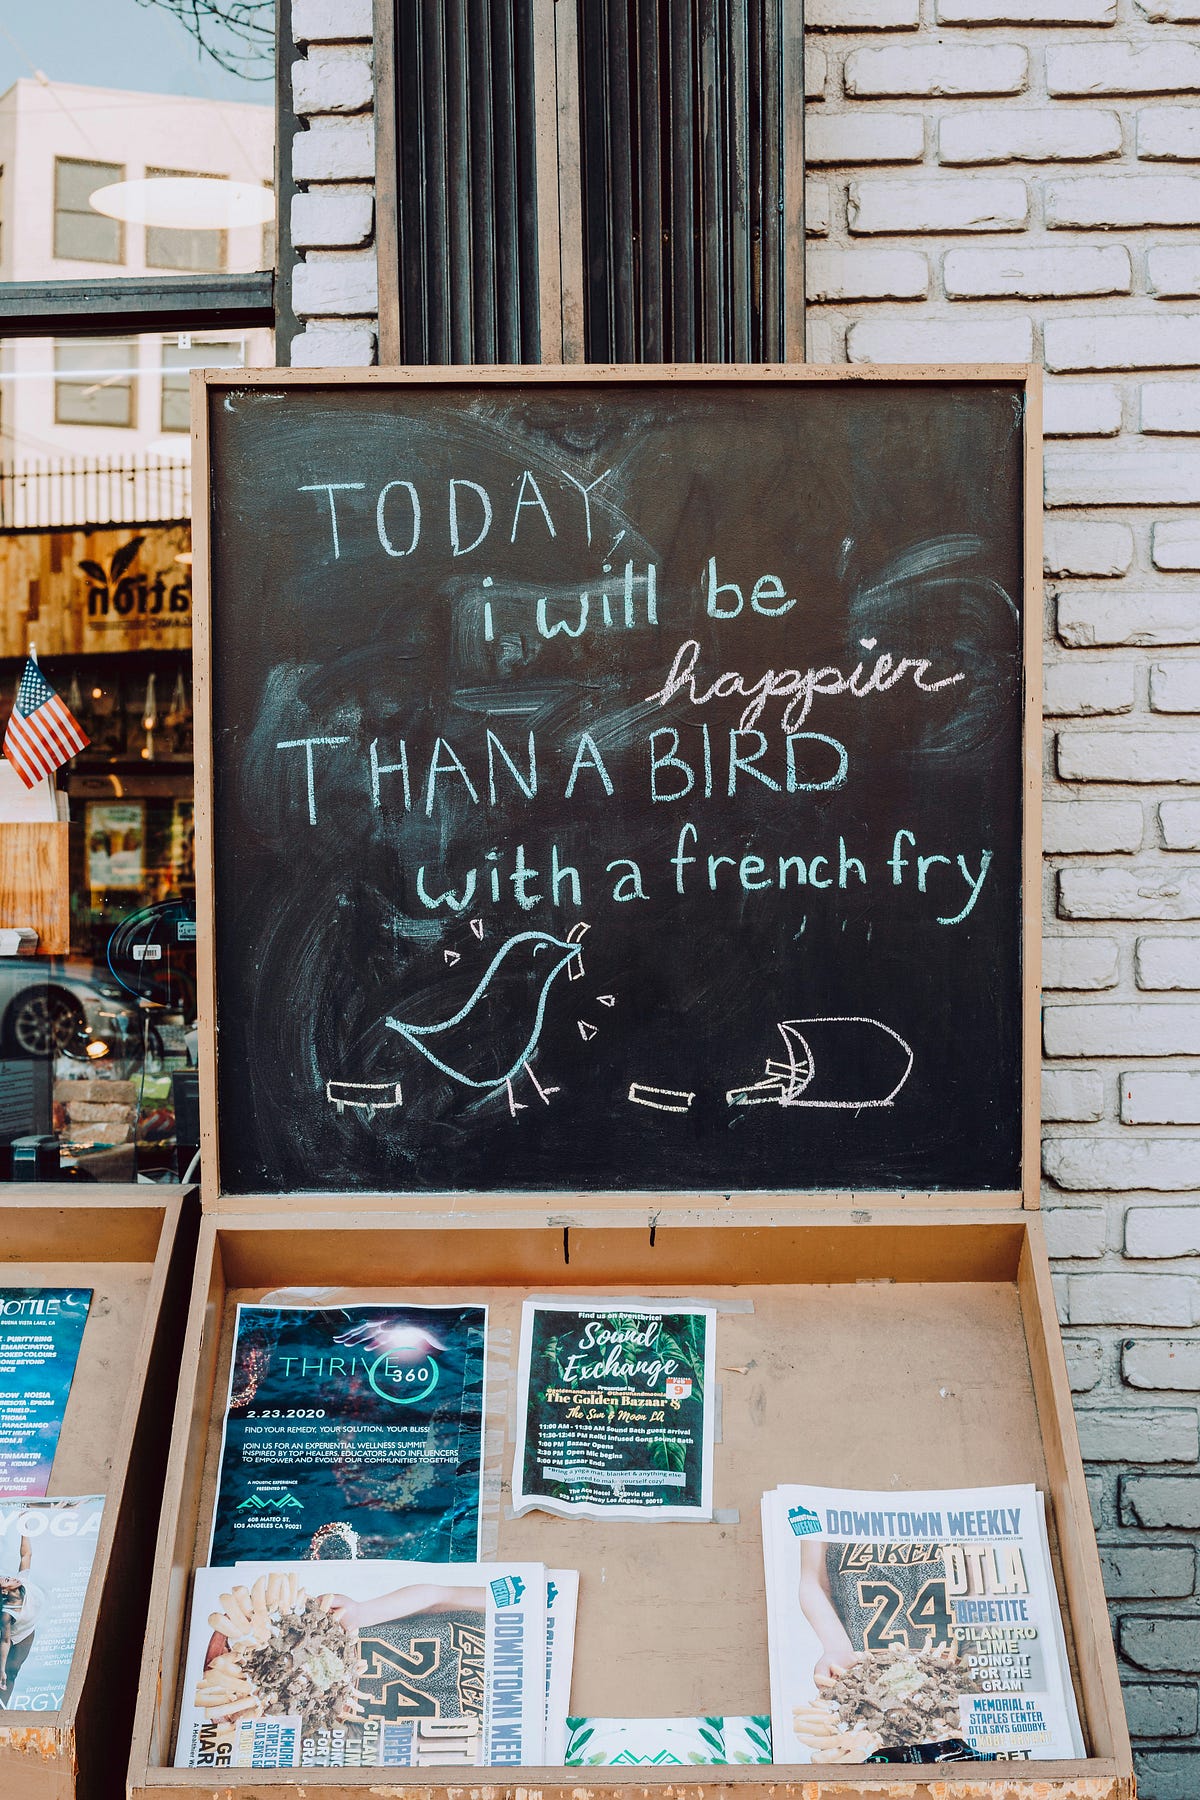 TODAY,
i will be
happier
THAN A BIRD
with a french fry
BOTTLE
BUENA VISTA LAKE, CA
THRIVE
360
2.23.2020
FIND YOUR REMEDY, YOUR SOLUTION, YOUR BLISS!
JOIN US FOR AN EXPERIENTIAL WELLNESS SUMMIT
INSPIRED BY TOP HEALERS, EDUCATORS AND INFLUENCERS
TO EMPOWER AND EVOLVE OUR COMMUNITIES TOGETHER.
A HOLISTIC EXPERIENCE
PRESENTED BY
AWA
608 MATEO ST,
LOS ANGELES CA 90021
Find us on Eventbrite!
Sound
Exchange
Presented by
9
The Golden Bazaar &
The Sun & Moon LA
11:00 AM - 11:30 AM Sound Bath guest arrival
11:30-12:45 PM Reiki infused Gong Sound Bath
1:00 PM Bazaar Opens
2:30 PM Open Mic begins
5:00 PM Bazaar Ends
*Bring a yoga mat, blanket & anything else
you need to make yourself cozy!
The Ace Hotel Segovia Hall
929 s broadway Los Angeles 90015
YOGA
DOWNTOWN WEEKLY
LAKERS
24
DTLA
APPETITE
CILANTRO
LIME
DOING IT
FOR THE
GRAM
MEMORIAL AT
STAPLES CENTER
DTLA SAYS GOODBYE
TO KOBE BRYANT
GET
DOWNTOWN WEEK
24
AWA